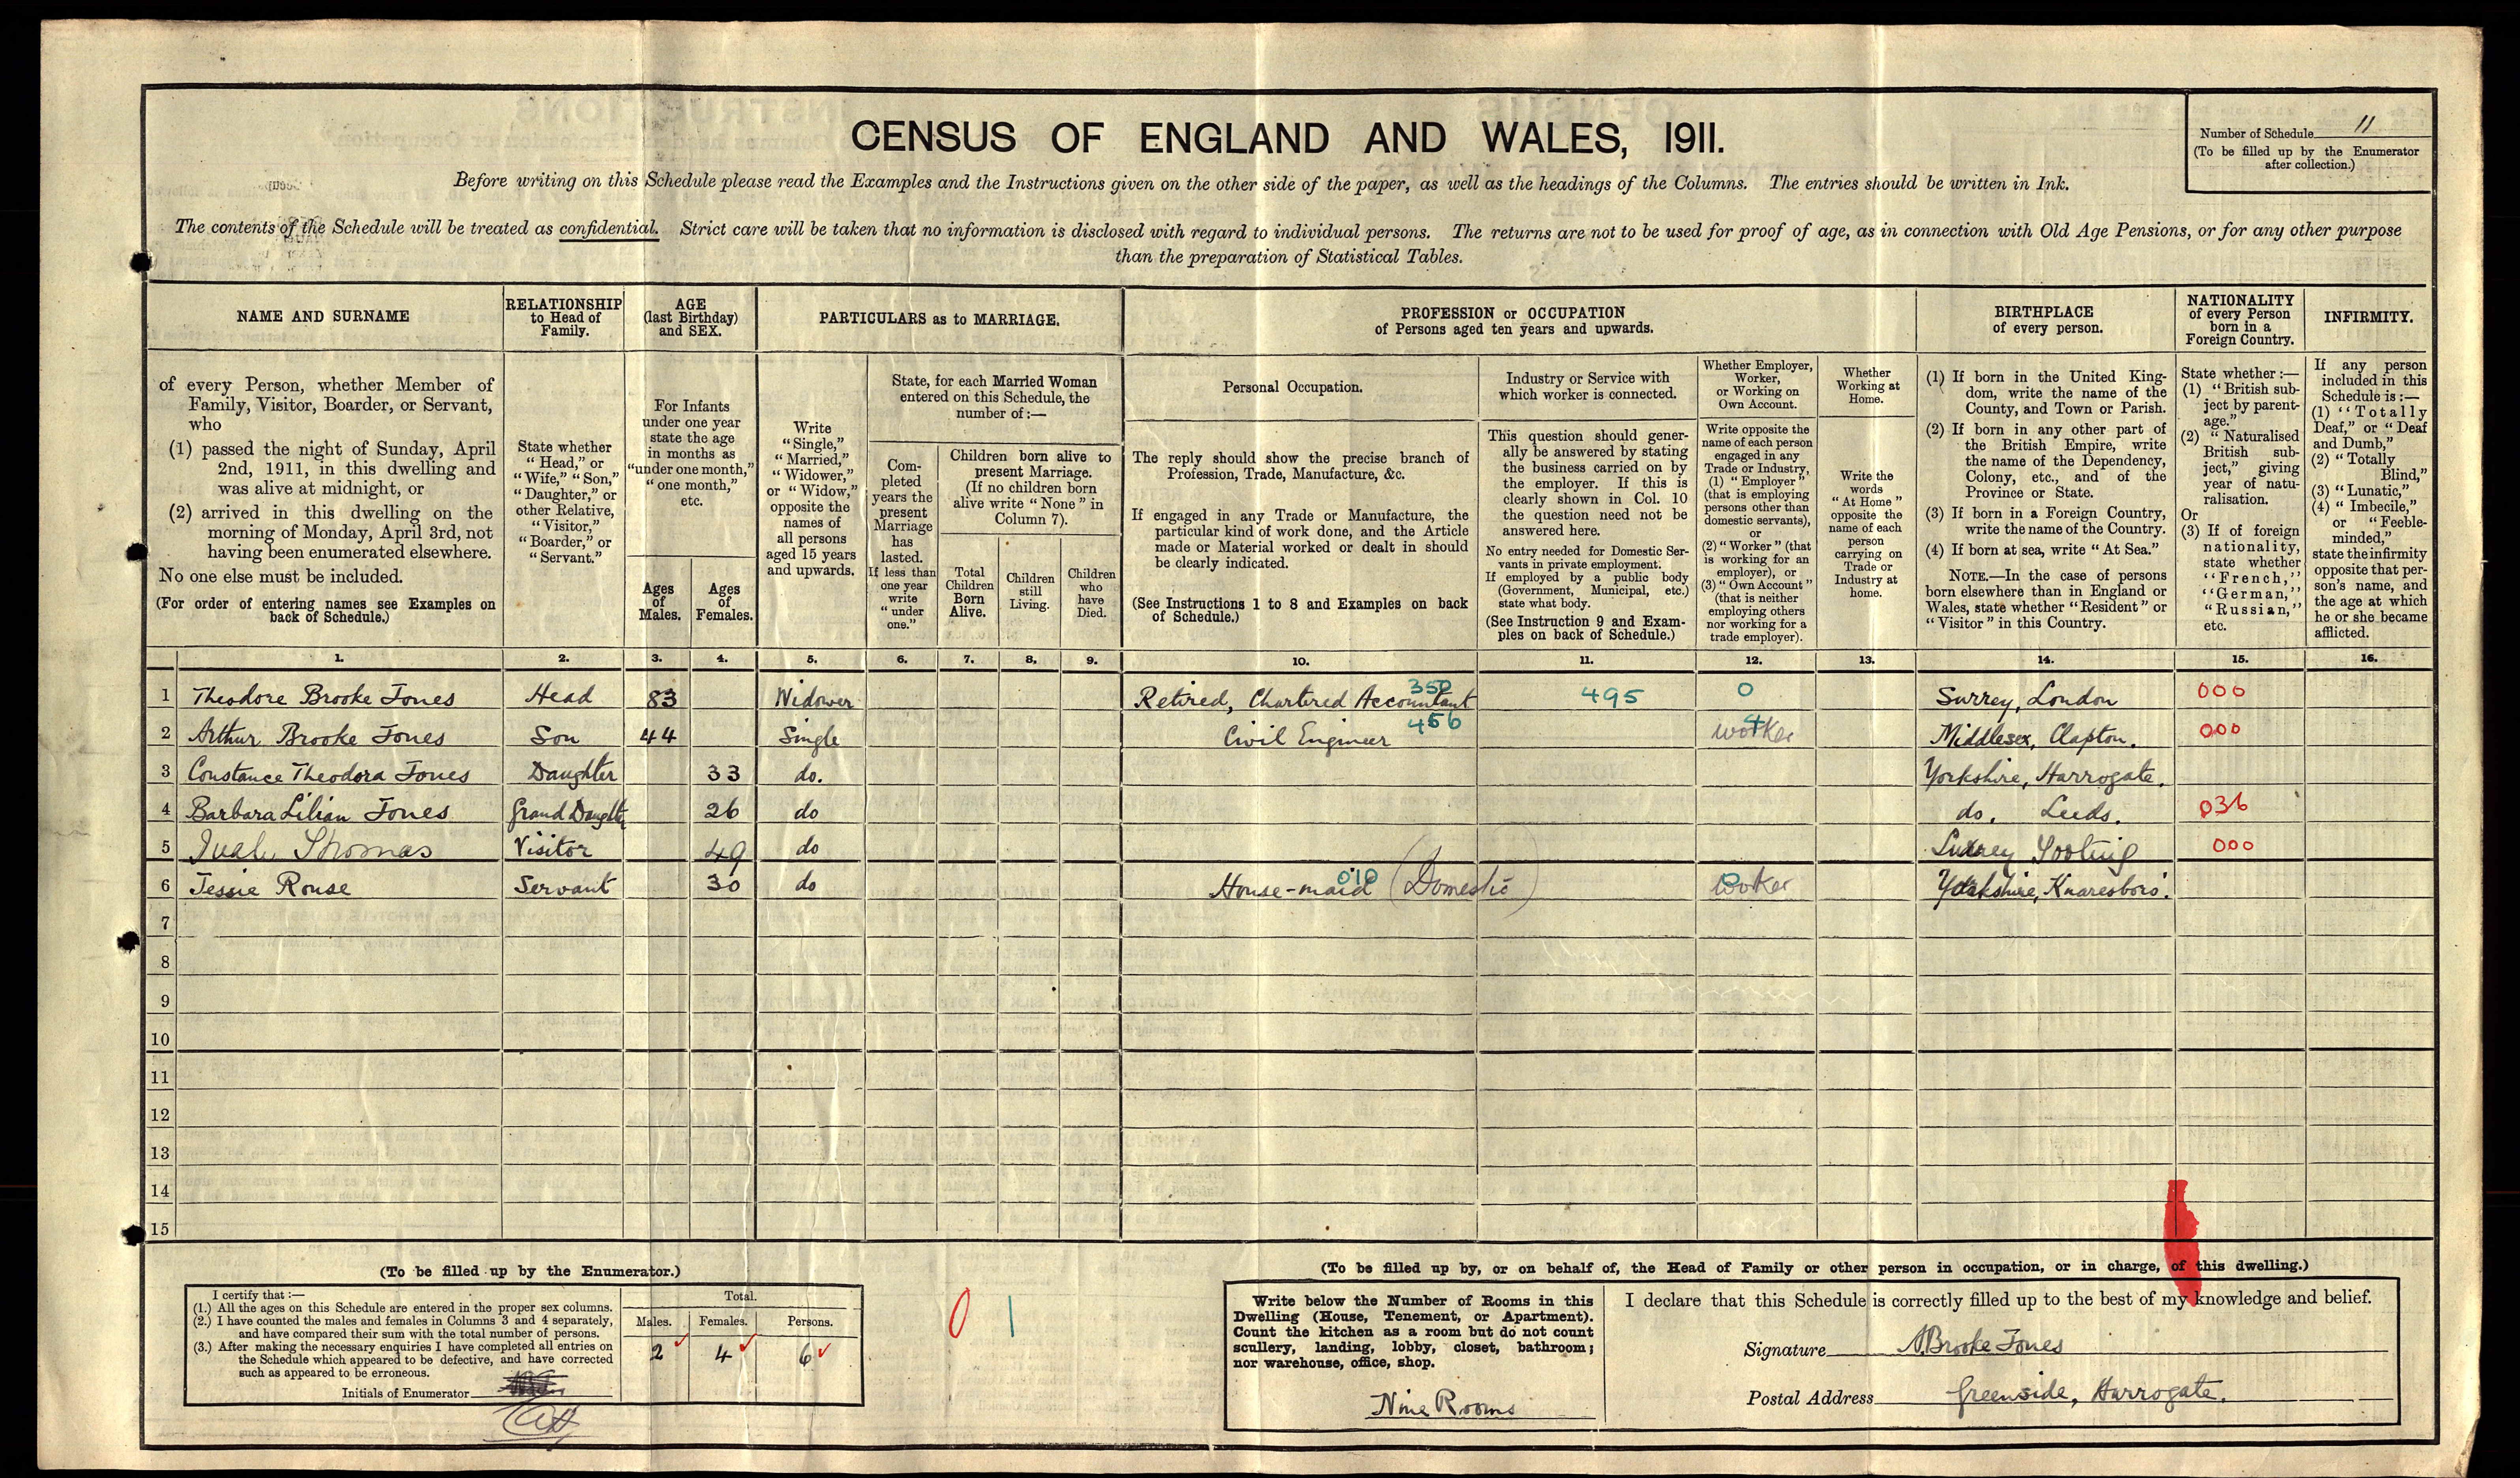 CENSUS OF ENGLAND AND WALES, 1911.
Number of Schedule 11
(To be filled up by the Enumerator
after collection.)
Before writing on this Schedule please read the Examples and the Instructions given on the other side of the paper, as well as the headings of the Columns. The entries should be written in Ink.
The contents of the Schedule will be treated as confidential. Strict care will be taken that no information is disclosed with regard to individual persons. The returns are not to be used for proof of age, as in connection with Old Age Pensions, or for any other purpose
than the preparation of Statistical Tables.
NAME AND SURNAME
of every Person, whether Member of
Family, Visitor, Boarder, or Servant,
who
(1) passed the night of Sunday, April
2nd, 1911, in this dwelling and
was alive at midnight, or
(2) arrived in this dwelling on the
morning of Monday, April 3rd, not
having been enumerated elsewhere.
No one else must be included.
(For order of entering names see Examples on
back of Schedule.)
RELATIONSHIP
to Head of
Family.
State whether
"Head," or
"Wife," "Son,"
"Daughter," or
other Relative,
"Visitor,"
"Boarder," or
"Servant."
AGE
(last Birthday)
and SEX.
For Infants
under one year
state the age
in months as
"under one month,"
"one month,"
etc.
Ages
of
Males.
Ages
of
Females.
PARTICULARS as to MARRIAGE.
Write
"Single,"
"Married,"
"Widower,"
or "Widow,"
opposite the
names of
all persons
aged 15 years
and upwards.
State, for each Married Woman
entered on this Schedule, the
number of:—
Com-
pleted
years the
present
Marriage
has
lasted.
If less than
one year
write
"under
one."
Children born alive to
present Marriage.
(If no children born
alive write "None" in
Column 7).
Total
Children
Born
Alive.
Children
still
Living.
Children
who
have
Died.
PROFESSION or OCCUPATION
of Persons aged ten years and upwards.
Personal Occupation.
The reply should show the precise branch of
Profession, Trade, Manufacture, &c.
If engaged in any Trade or Manufacture, the
particular kind of work done, and the Article
made or Material worked or dealt in should
be clearly indicated.
(See Instructions 1 to 8 and Examples on back
of Schedule.)
Industry or Service with
which worker is connected.
This question should gener-
ally be answered by stating
the business carried on by
the employer. If this is
clearly shown in Col. 10
the question need not be
answered here.
No entry needed for Domestic Ser-
vants in private employment.
If employed by a public body
(Government, Municipal, etc.)
state what body.
(See Instruction 9 and Exam-
ples on back of Schedule.)
Whether Employer,
Worker,
or Working on
Own Account.
Write opposite the
name of each person
engaged in any
Trade or Industry,
(1) "Employer"
(that is employing
persons other than
domestic servants),
or
(2) "Worker" (that
is working for an
employer), or
(3) "Own Account"
(that is neither
employing others
nor working for a
trade employer).
Whether
Working at
Home.
Write the
words
"At Home"
opposite the
name of each
person
carrying on
Trade or
Industry at
home.
BIRTHPLACE
of every person.
(1) If born in the United King-
dom, write the name of the
County, and Town or Parish.
(2) If born in any other part of
the British Empire, write
the name of the Dependency,
Colony, etc., and of the
Province or State.
(3) If born in a Foreign Country,
write the name of the Country.
(4) If born at sea, write "At Sea."
NOTE.—In the case of persons
born elsewhere than in England or
Wales, state whether "Resident" or
"Visitor" in this Country.
NATIONALITY
of every Person
born in a
Foreign Country.
State whether :—
(1) "British sub-
ject by parent-
age."
(2) "Naturalised
British sub-
ject," giving
year of natu-
ralisation.
Or
(3) If of foreign
nationality,
state whether
"French,"
"German,"
"Russian,"
etc.
INFIRMITY.
If any person
included in this
Schedule is:—
(1) "Totally
Deaf," or "Deaf
and Dumb,"
(2) "Totally
Blind,"
(3) "Lunatic,"
(4) "Imbecile,"
or "Feeble-
minded,"
state the infirmity
opposite that per-
son's name, and
the age at which
he or she became
afflicted.
1. 2. 3. 4. 5. 6. 7. 8. 9. 10. 11. 12. 13. 14. 15. 16.
1 Theodore Brooke Jones Head 83 Widower Retired, Chartered Accountant 350 495 0 Surrey, London 000
2 Arthur Brooke Jones Son 44 Single Civil Engineer 456 Worker 4 Middlesex, Clapton. 000
3 Constance Theodora Jones Daughter 33 do. Yorkshire, Harrogate.
4 Barbara Lilian Jones Grand Daughter 26 do do. Leeds. 036
5 Thomas Visitor 49 do Surrey Tooting 000
6 Jessie Rouse Servant 30 do House-maid (Domestic) 010 Worker Yorkshire, Knaresboro'.
7
8
9
10
11
12
13
14
15
(To be filled up by the Enumerator.)
I certify that :—
(1.) All the ages on this Schedule are entered in the proper sex columns.
(2.) I have counted the males and females in Columns 3 and 4 separately,
and have compared their sum with the total number of persons.
(3.) After making the necessary enquiries I have completed all entries on
the Schedule which appeared to be defective, and have corrected
such as appeared to be erroneous.
Initials of Enumerator
Total.
Males. Females. Persons.
2 4 6
0 1
(To be filled up by, or on behalf of, the Head of Family or other person in occupation, or in charge, of this dwelling.)
Write below the Number of Rooms in this
Dwelling (House, Tenement, or Apartment).
Count the kitchen as a room but do not count
scullery, landing, lobby, closet, bathroom;
nor warehouse, office, shop.
Nine Rooms
I declare that this Schedule is correctly filled up to the best of my knowledge and belief.
Signature A. Brooke Jones
Postal Address Greenside, Harrogate.